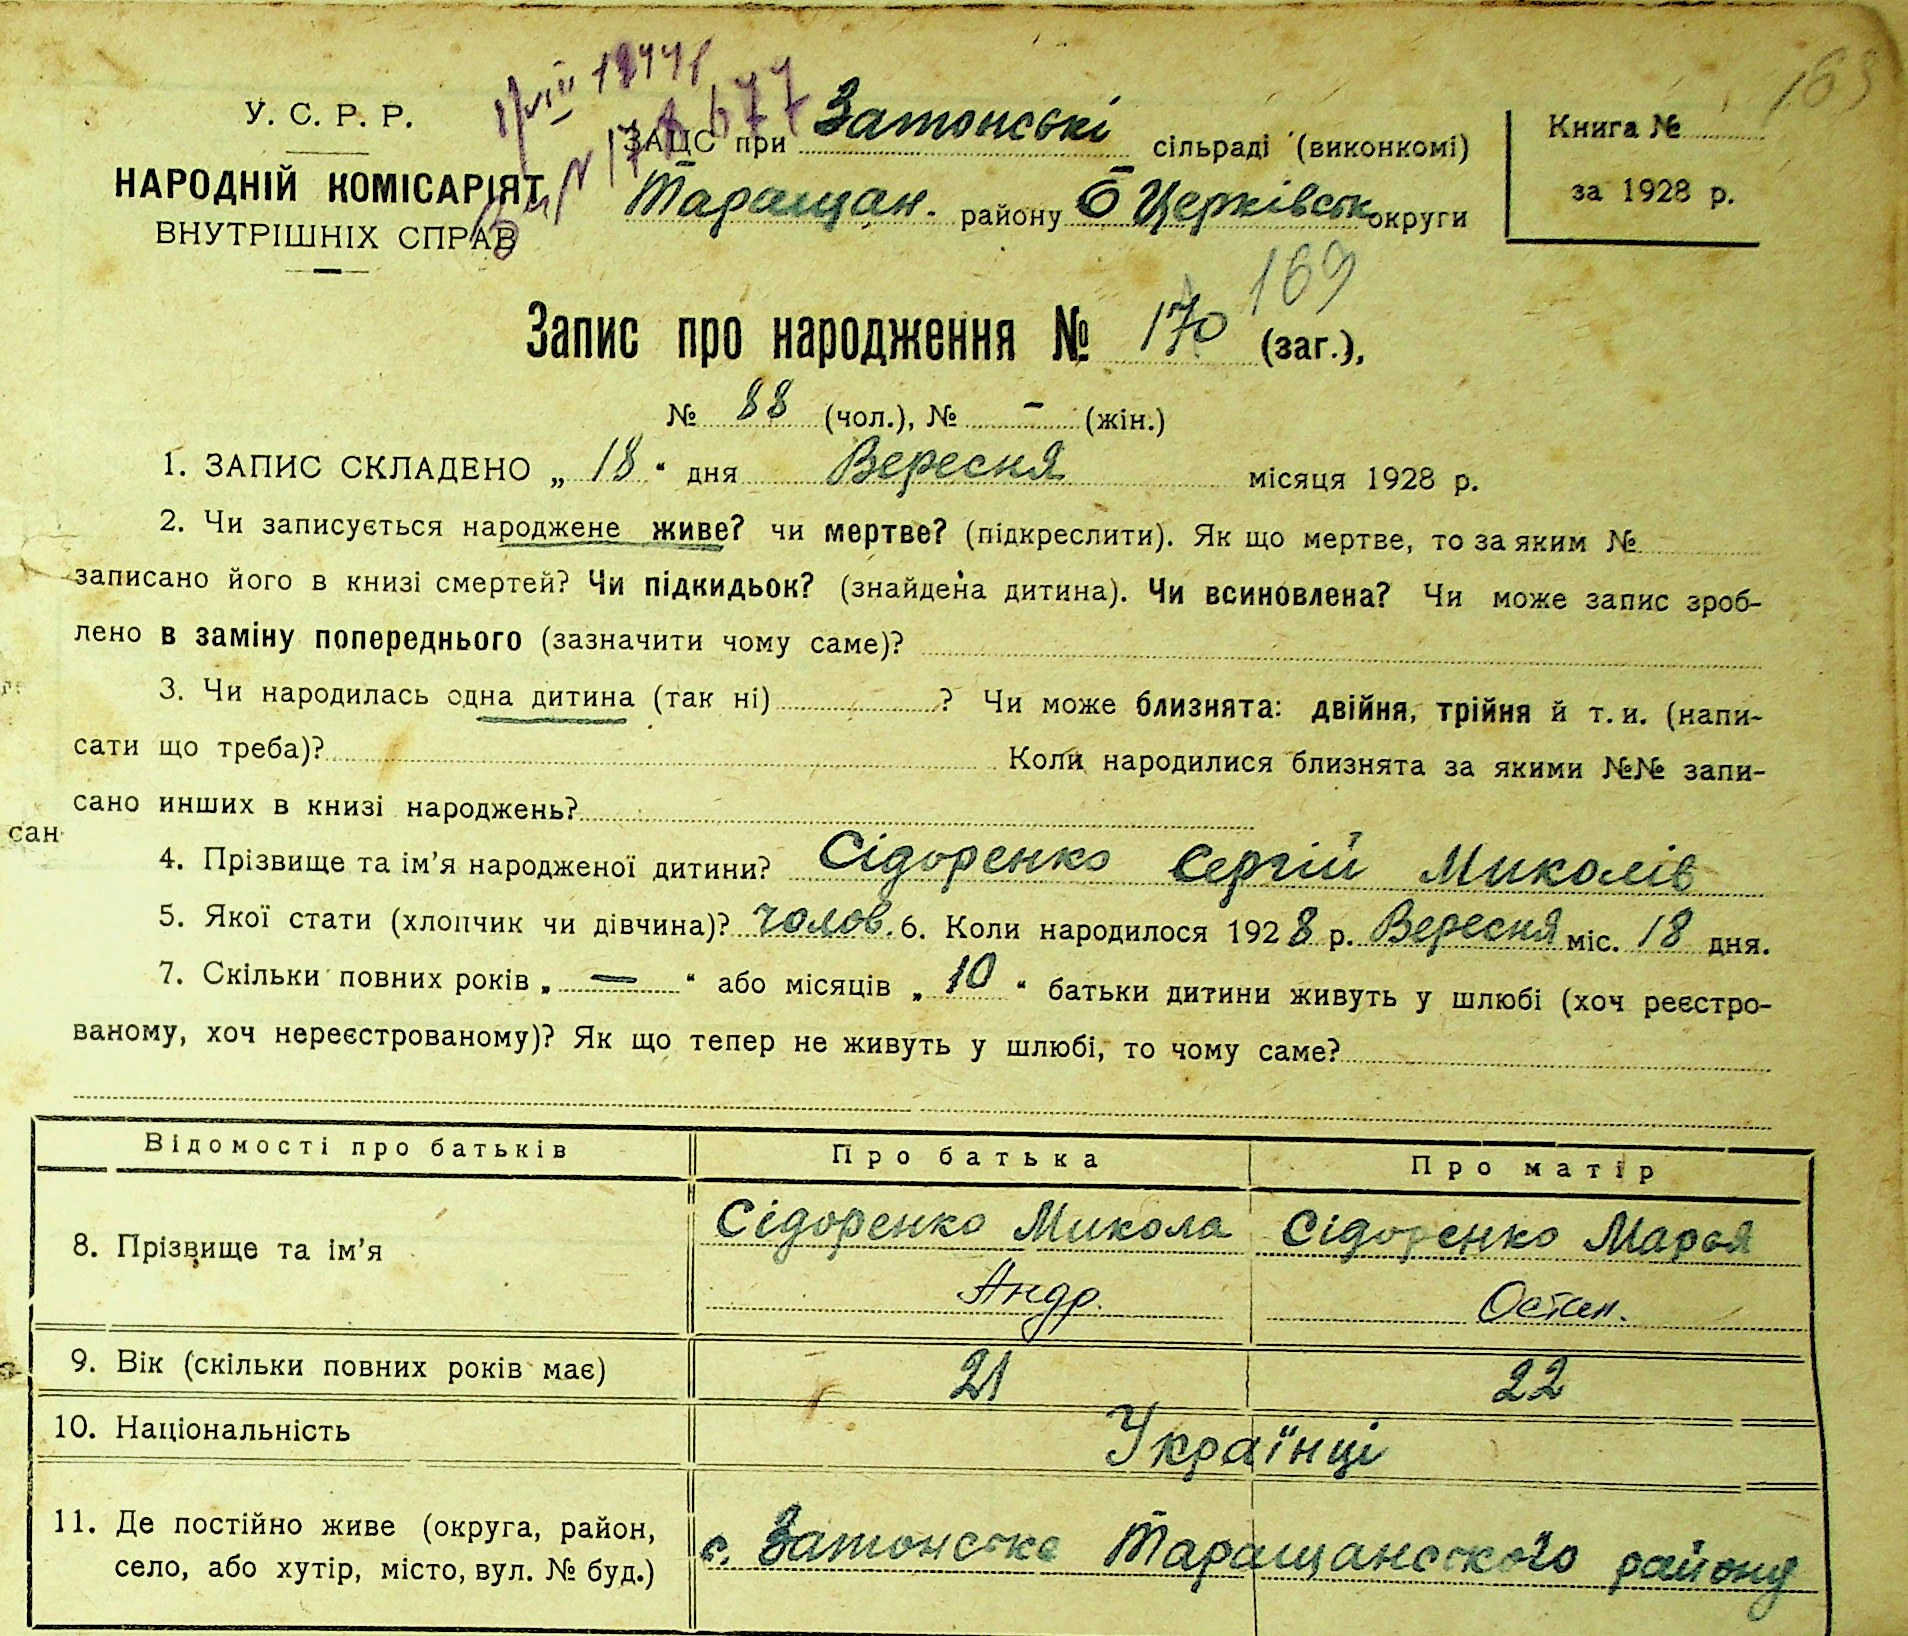 165
1/VIII 1944 р
У. С. Р. Р.
НАРОДНІЙ КОМІСАРІЯТ
ВНУТРІШНІХ СПРАВ
ЗАЦС при Затонські сільраді (виконкомі)
Таращан. району Б Церківськ округи
Книга №
за 1928 р.
169
Запис про народження № 170 (заг.),
№ 88 (чол.), № - (жін.)
1. ЗАПИС СКЛАДЕНО „ 18 “ дня Вересня місяця 1928 р.
2. Чи записується народжене живе? чи мертве? (підкреслити). Як що мертве, то за яким №
записано його в книзі смертей? Чи підкидьок? (знайдена дитина). Чи всиновлена? Чи може запис зроб-
лено в заміну попереднього (зазначити чому саме)?
3. Чи народилась одна дитина (так ні) ? Чи може близнята: двійня, трійня й т. и. (напи-
сати що треба)? Коли народилися близнята за якими №№ запи-
сано инших в книзі народжень?
сан
4. Прізвище та ім’я народженої дитини? Сідоренко Сергій Миколів
5. Якої стати (хлопчик чи дівчина)? чолов. 6. Коли народилося 1928 р. Вересня міс. 18 дня.
7. Скільки повних років „ — “ або місяців „ 10 “ батьки дитини живуть у шлюбі (хоч реєстро-
ваному, хоч нереєстрованому)? Як що тепер не живуть у шлюбі, то чому саме?
Відомості про батьків Про батька Про матір
8. Прізвище та ім’я Сідоренко Микола Сідоренко Марья
Андр. Остап.
9. Вік (скільки повних років має) 21 22
10. Національність Українці
11. Де постійно живе (округа, район,
село, або хутір, місто, вул. № буд.) с. Затонське Таращанського району